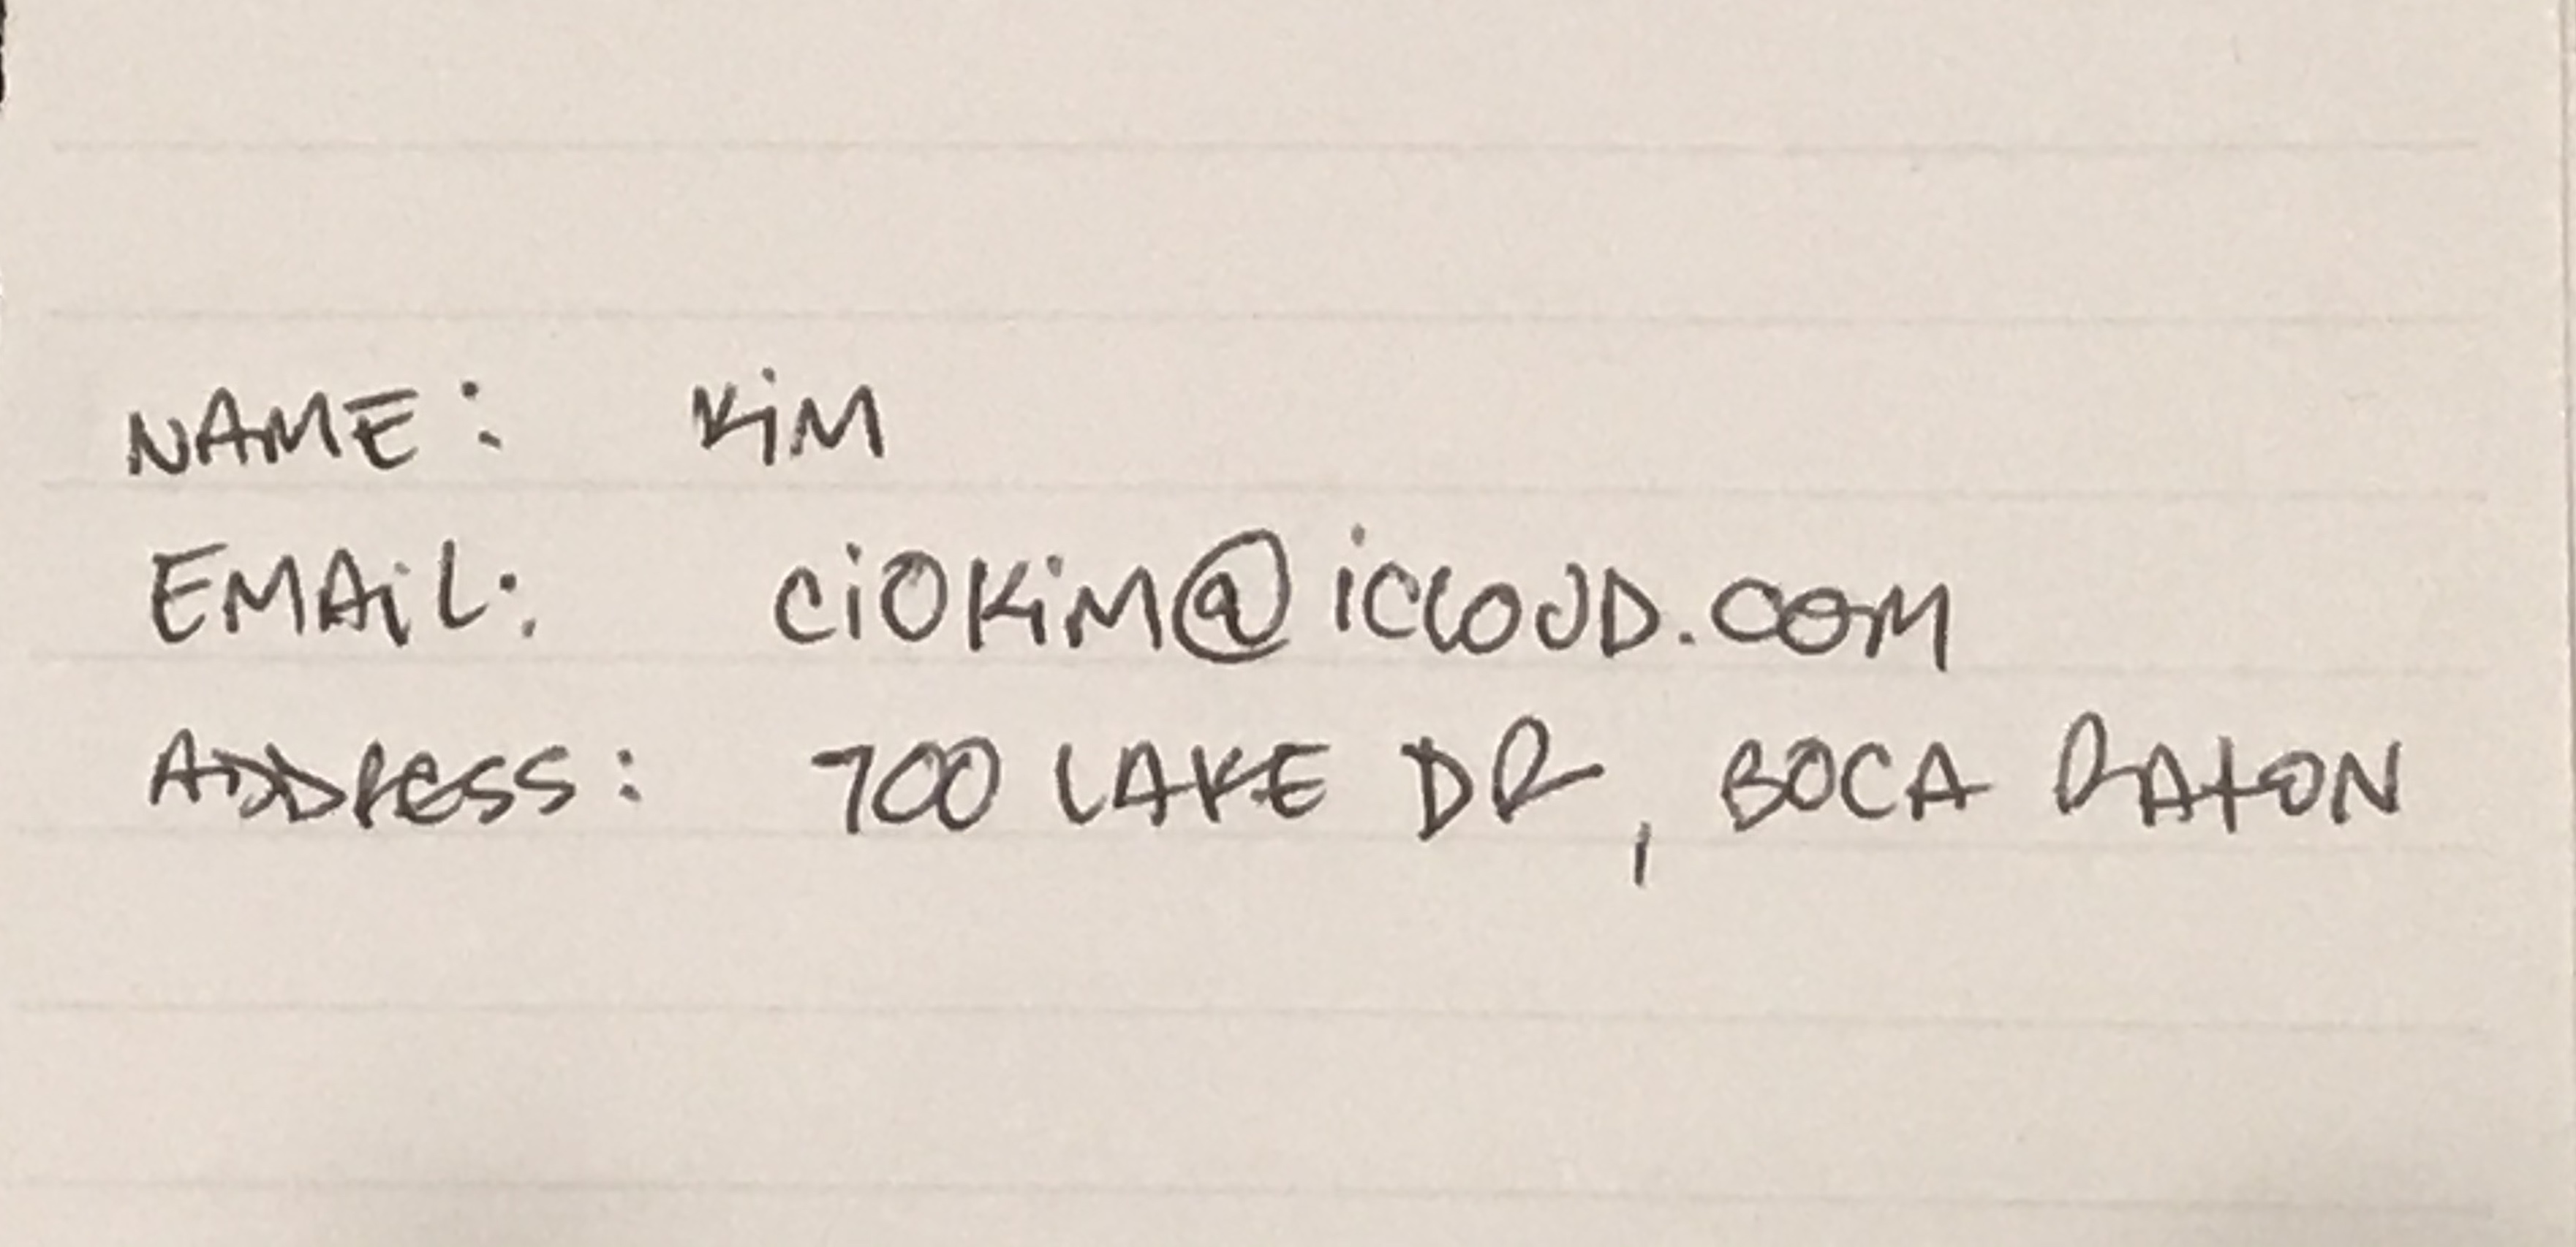 NAME: KiM
EMAiL: CiOKiM@iCLOUD.COM
ADDRESS: 700 LAKE DR, BOCA RATON